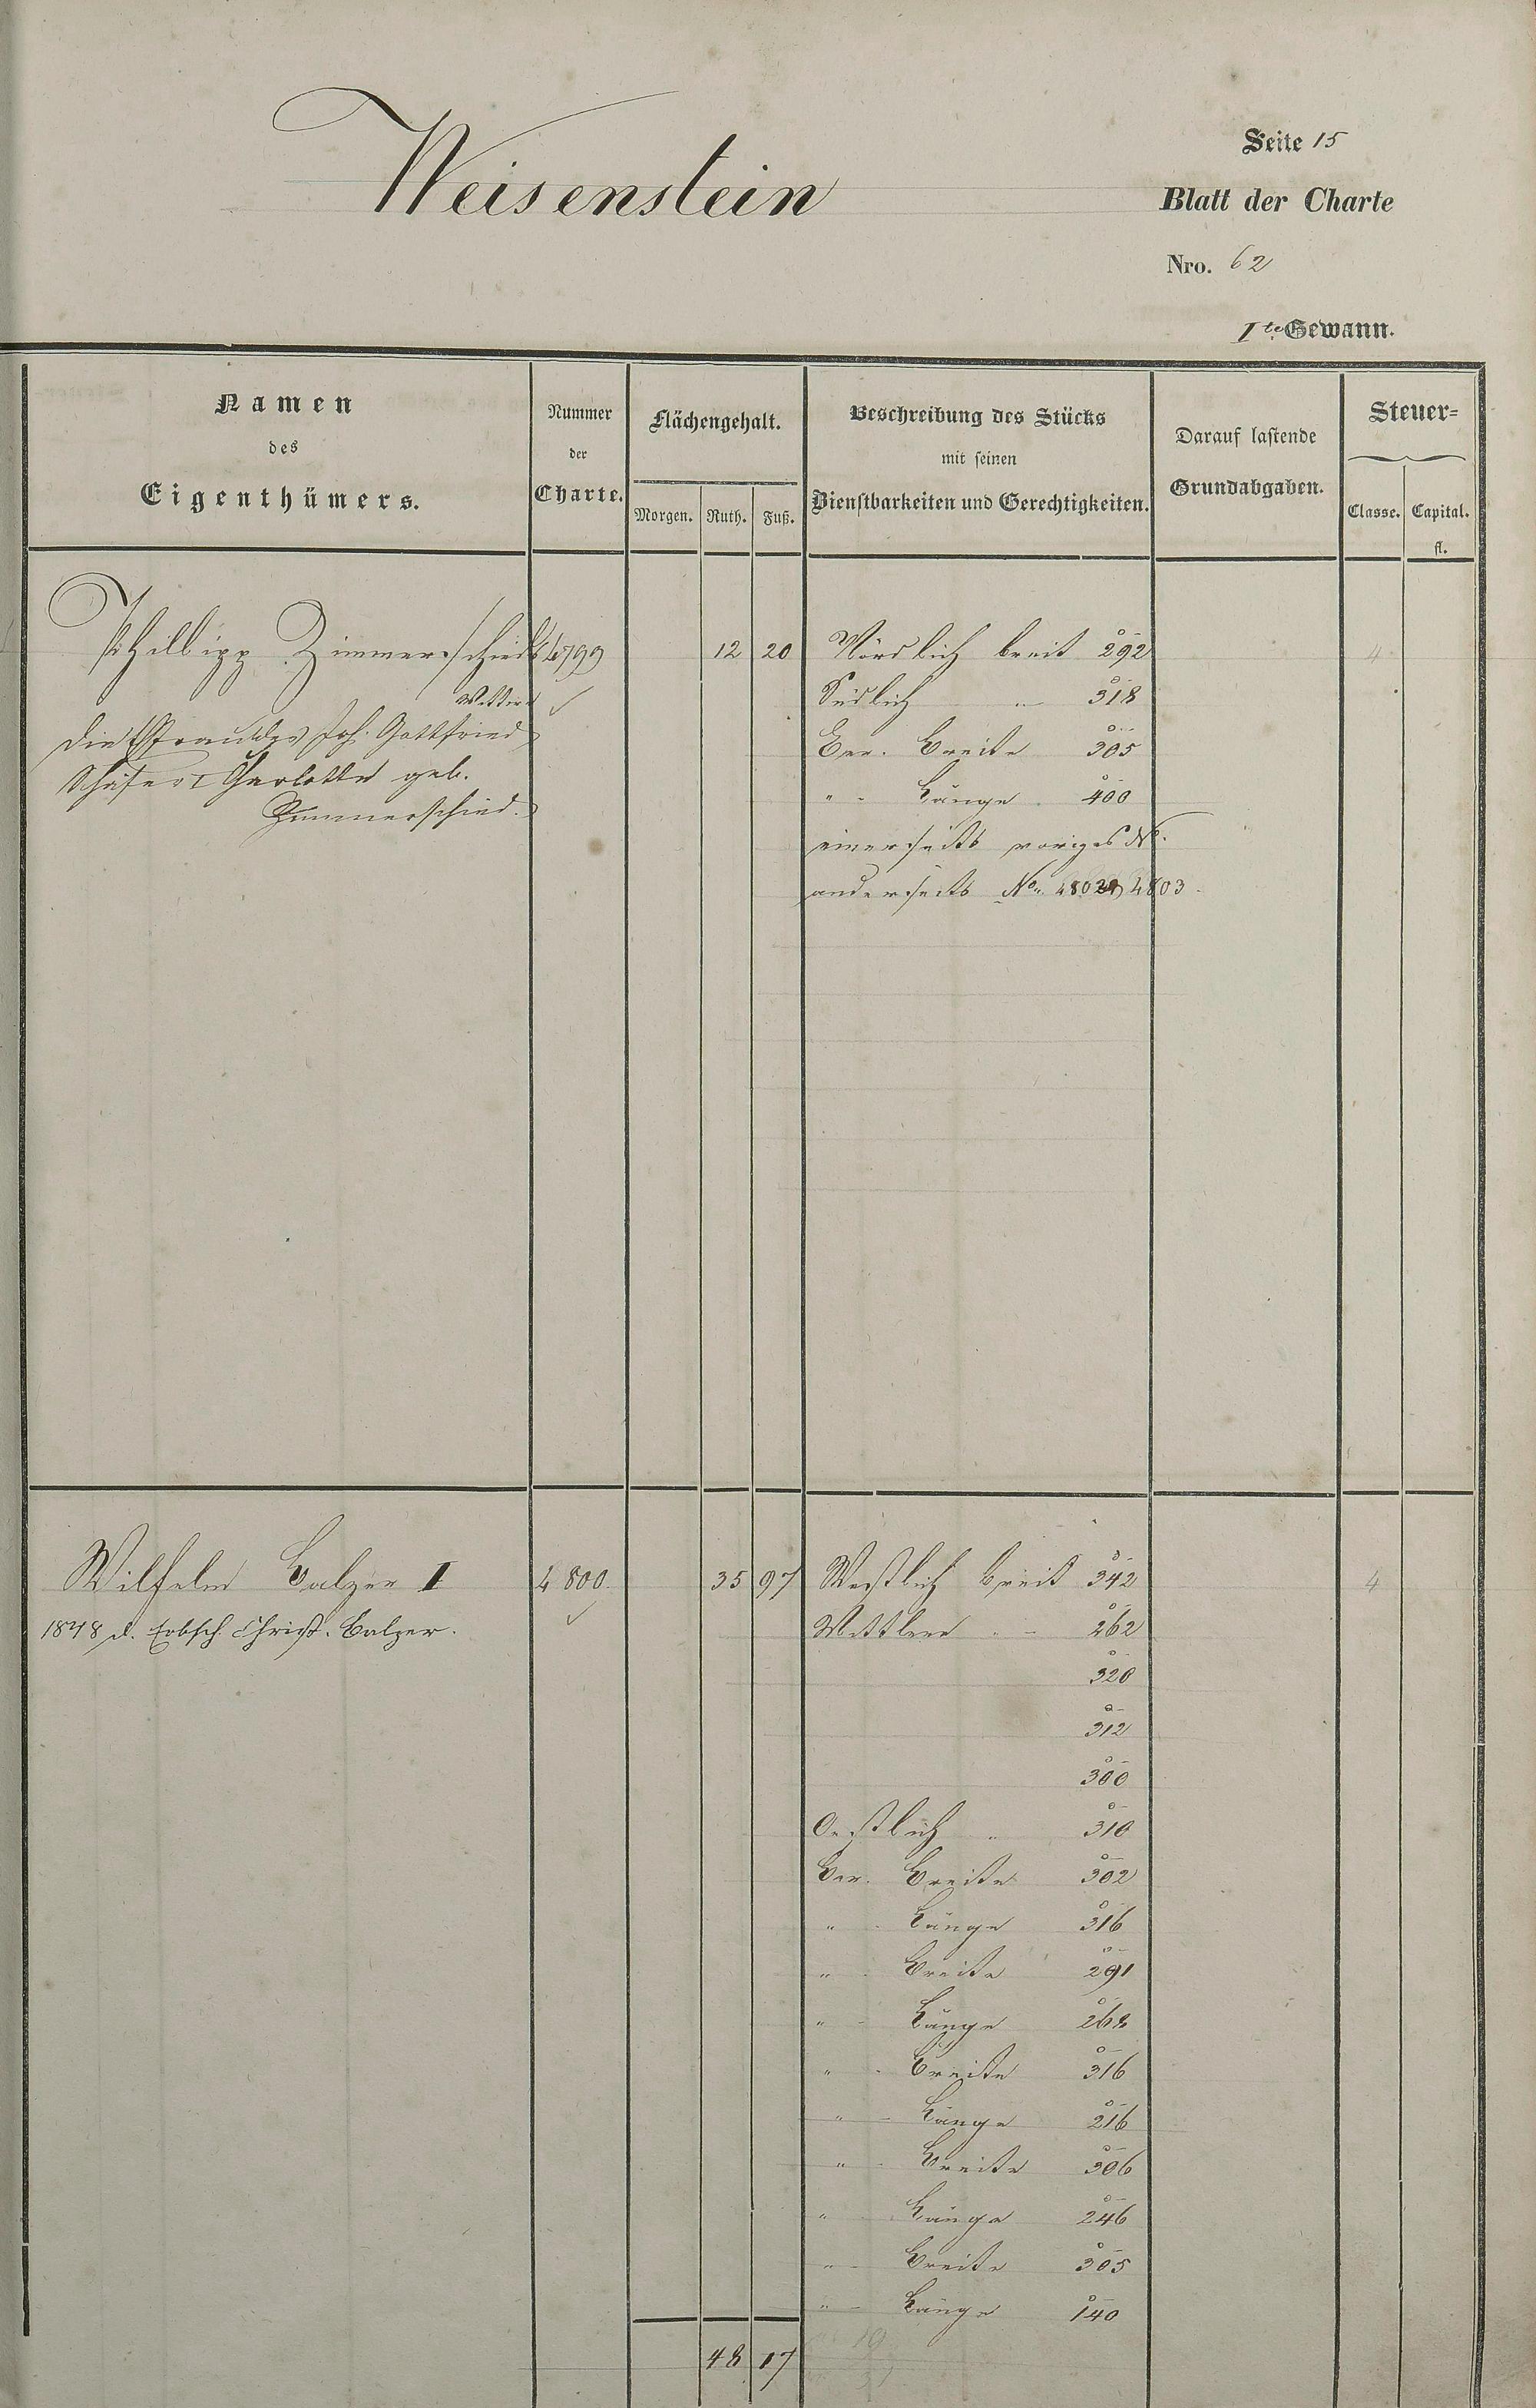 Weisenstein
Seite 15
Blatt der Charte
Nro. 62
Ite Gewann.
Namen
des
Eigenthümers.
Nummer
der
Charte.
Flächengehalt.
Morgen. Ruth. Fuß.
Beschreibung des Stücks
mit seinen
Dienstbarkeiten und Gerechtigkeiten.
Darauf lastende
Grundabgaben.
Steuer=
Classe. Capital.
fl.
Philipp Zimmerschied's 4799 12 20 Nördlich breit 292 4
Wittwe Südlich " 318
die Ehefrau des Joh. Gottfried Ver. Breite 305
Schäfer I Charlotte geb. " Länge 400
Zimmerschied. einerseits voriges No.
anderseits No. 4802 4803
Wilhelm Balzer I 4800. 35 97 Westlich breit 342 4
1848 d. Erbsch. Christ. Balzer. Mittlere " 262
320
312
300
Oestlich " 310
Ver. Breite 302
" Länge 316
" Breite 291
" Länge 268
" Breite 316
" Länge 216
" Breite 306
" Länge 246
" Breite 305
" Länge 140
48 17